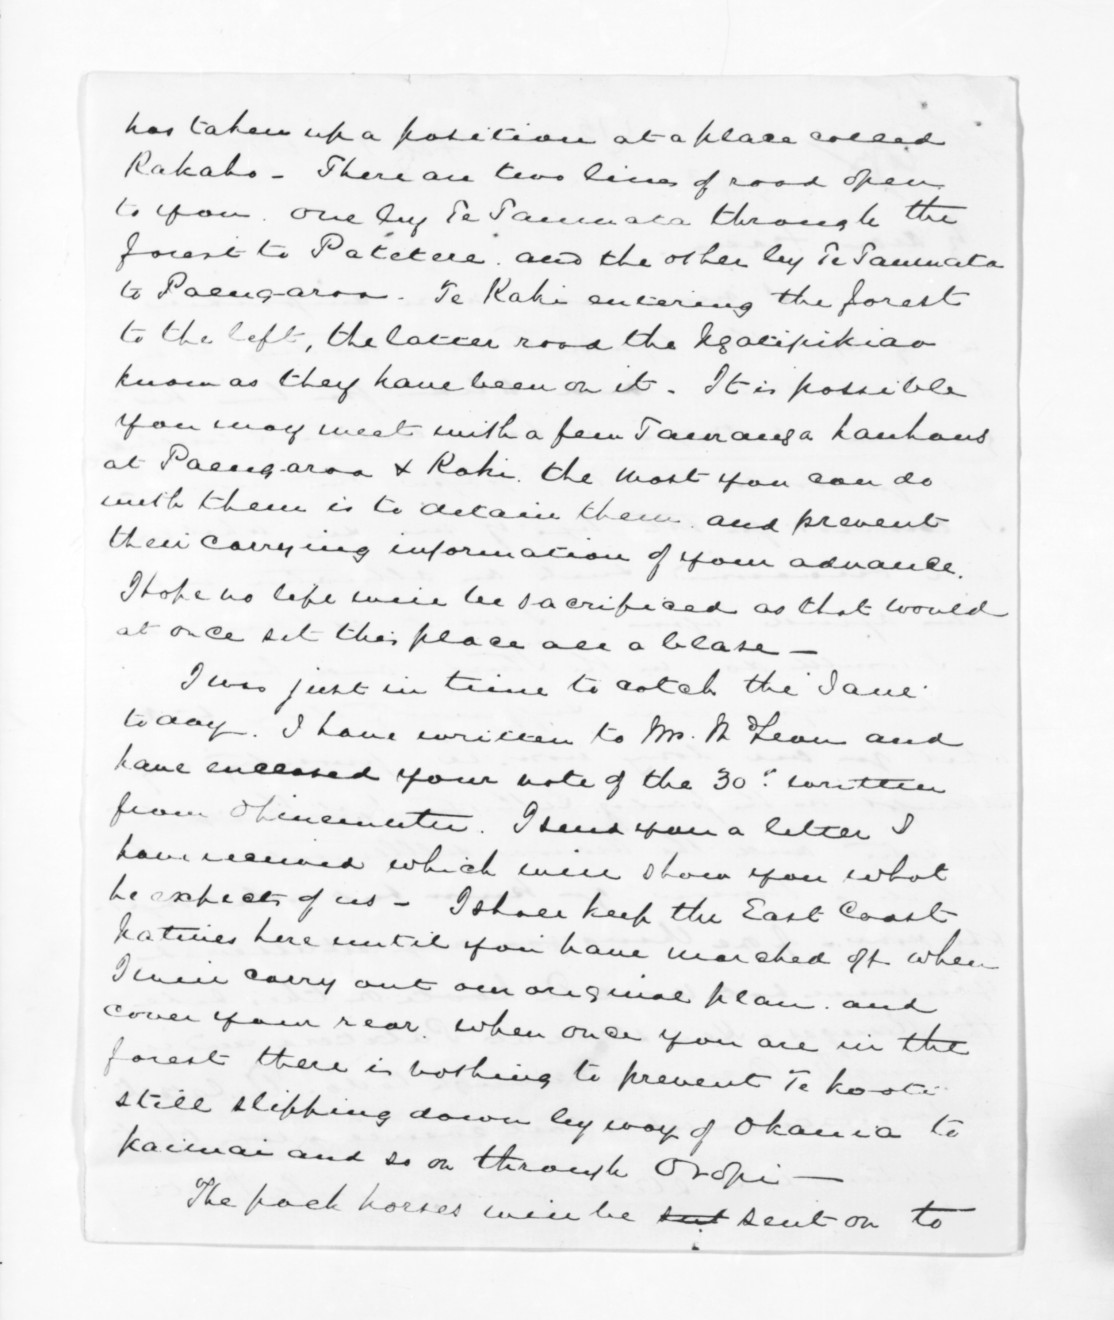 has taken up a position at a place called
Kakaho - There are two lines of road open
to you. one by Te Taumata through the
forest to Patetere. and the other by Te Taumata
to Paengaroa. Te Kaki entering the forest
to the left, the latter road the Ngatipikiao
know as they have been on it. It is possible
you may meet with a few Tauranga hauhaus
at Paengaroa & Kaki. the most you can do
with them is to detain them. and prevent
their carrying information of your advance.
I hope no life will be sacrificed as that would
at once set this place all a blase -
I was just in time to catch the
today. I have written to Mr. McLean and
have enclosed your note of the 30th. written
from Ohinemutu. I send you a letter I
have received which will show you what
he expects of us - I shall keep the East Coast
Natives here until you have marched off when
I will carry out our original plan. and
cover your rear. when once you are in the
forest there is nothing to prevent Te Kooti
still slipping down by way of Okauia to
Kaimai and so on through Oropi -
The pack horses will be sent sent on to